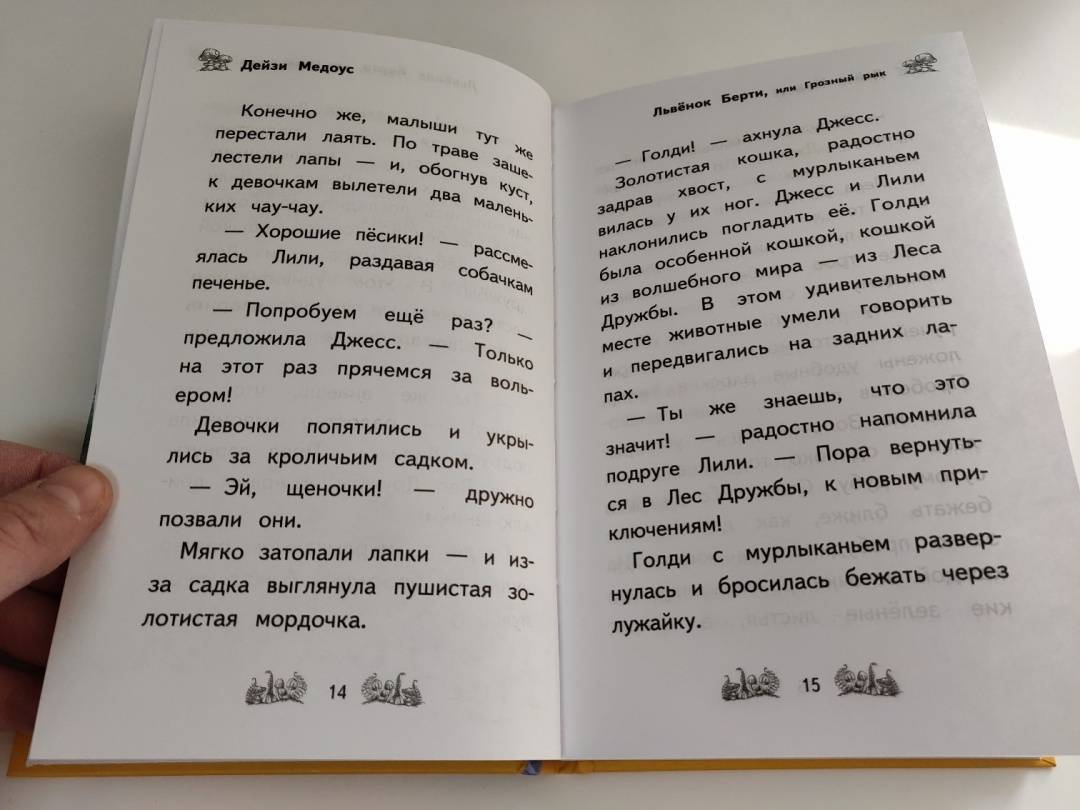 Дейзи Медоус
Конечно же, малыши тут же
перестали лаять. По траве заше-
лестели лапы — и, обогнув куст,
к девочкам вылетели два малень-
ких чау-чау.
— Хорошие пёсики! — рассме-
ялась Лили, раздавая собачкам
печенье.
— Попробуем ещё раз? —
предложила Джесс. — Только
на этот раз прячемся за воль-
ером!
Девочки попятились и укры-
лись за кроличьим садком.
— Эй, щеночки! — дружно
позвали они.
Мягко затопали лапки — и из-
за садка выглянула пушистая зо-
лотистая мордочка.
14
Львёнок Берти, или Грозный рык
— Голди! — ахнула Джесс.
Золотистая кошка, радостно
задрав хвост, с мурлыканьем
вилась у их ног. Джесс и Лили
наклонились погладить её. Голди
была особенной кошкой, кошкой
из волшебного мира — из Леса
Дружбы. В этом удивительном
месте животные умели говорить
и передвигались на задних ла-
пах.
— Ты же знаешь, что это
значит! — радостно напомнила
подруге Лили. — Пора вернуть-
ся в Лес Дружбы, к новым при-
ключениям!
Голди с мурлыканьем развер-
нулась и бросилась бежать через
лужайку.
15